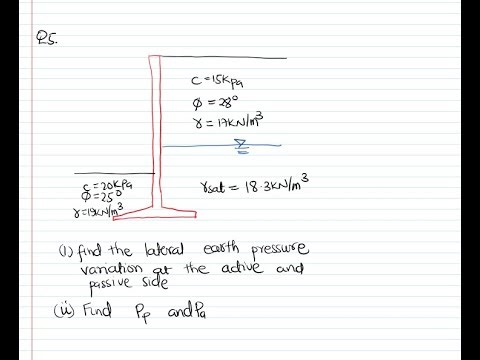 Q5.
C=15Kpa
ϕ=28°
γ=17KN/m³
C=20KPa
ϕ=25°
γ=19KN/m³
γsat = 18.3KN/m³
(i) find the lateral earth pressure
variation at the active and
passive side
(ii) Find Pp and Pa